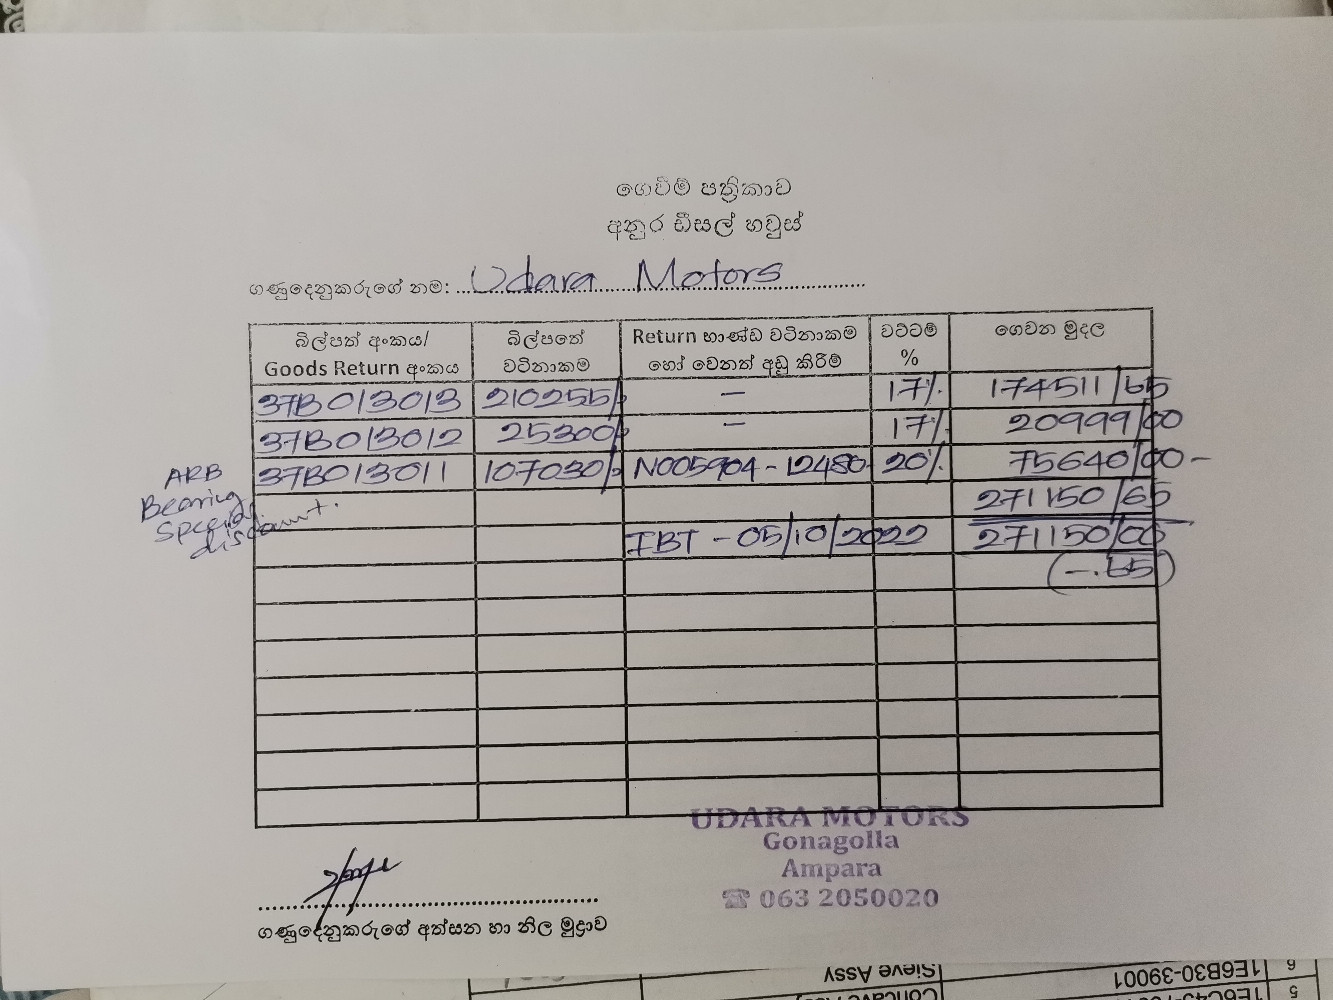 ගෙවීම් පත්‍රිකාව
අනුර ඩීසල් හවුස්
ගණුදෙනුකරුගේ නම: Udara Motors
බිල්පත් අංකය/ Goods Return අංකය බිල්පතේ වටිනාකම Return භාණ්ඩ වටිනාකම හෝ වෙනත් අඩු කිරීම් වට්ටම් % ගෙවන මුදල
37B013013 210255/- — 17% 174511/65
37B013012 25300/- — 17% 20999/00
ARB Bearing Special discount. 37B013011 107030/- N005904-12480 20% 75640/00-
271150/65
IBT - 05/10/2022 271150/00
(-.65)
UDARA MOTORS
Gonagolla
Ampara
☎ 063 2050020
ගණුදෙනුකරුගේ අත්සන හා නිල මුද්‍රාව
Sieve Assy 1E6B30-39001 6
5